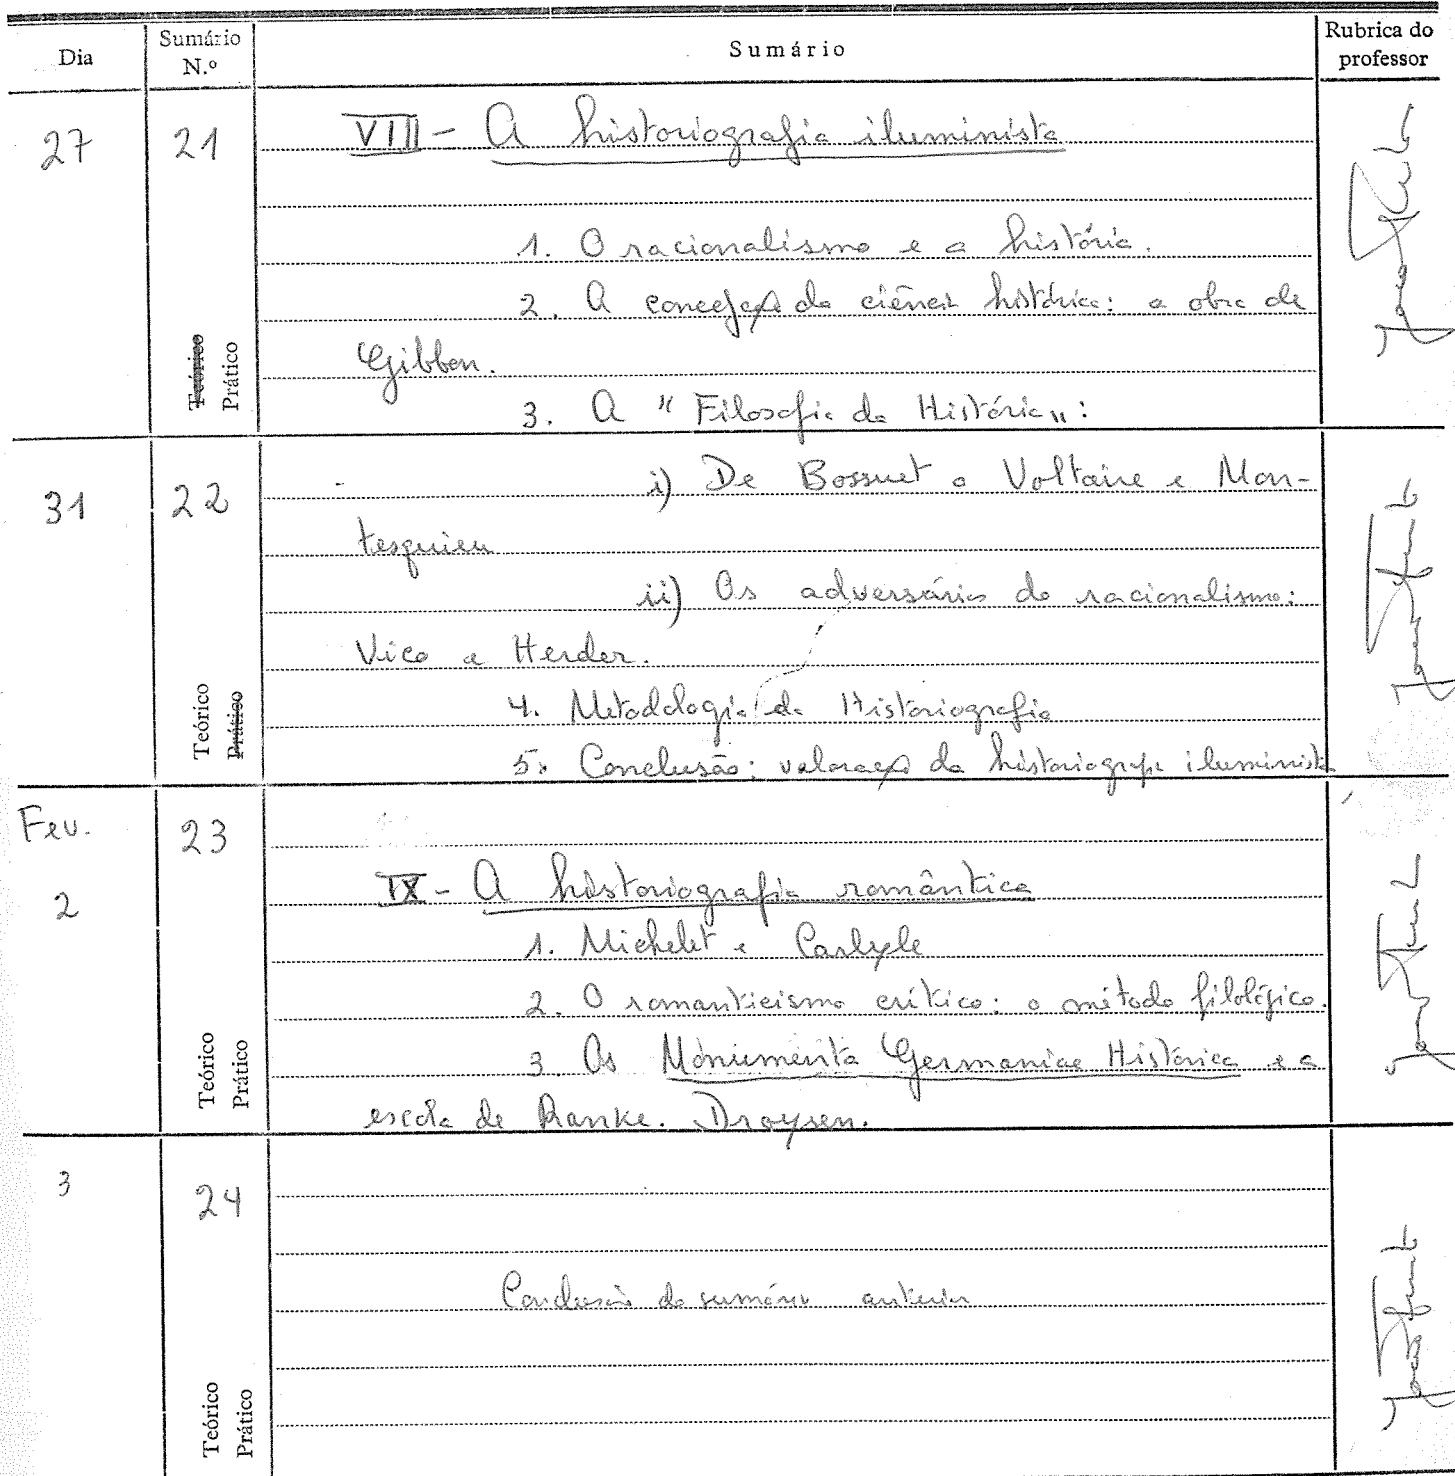 Dia Sumário N.º Sumário Rubrica do professor
27 21 VIII - A historiografia iluminista
1. O racionalismo e a história.
2. A concepção da ciência histórica: a obra de
Gibbon.
3. A "Filosofia da História":
Teórico Prático
31 22 i) De Bossuet a Voltaire e Mon-
tesquieu
ii) Os adversários do racionalismo:
Vico e Herder.
4. Metodologia da Historiografia
5. Conclusão: valoração da historiografia iluminista
Teórico Prático
Fev. 23
2 IX - A historiografia romântica
1. Michelet e Carlyle
2. O romanticismo crítico: o método filológico.
3. Os Monumenta Germaniae Historica e a
escola de Ranke. Droysen.
Teórico Prático
3 24
Conclusão do sumário anterior
Teórico Prático